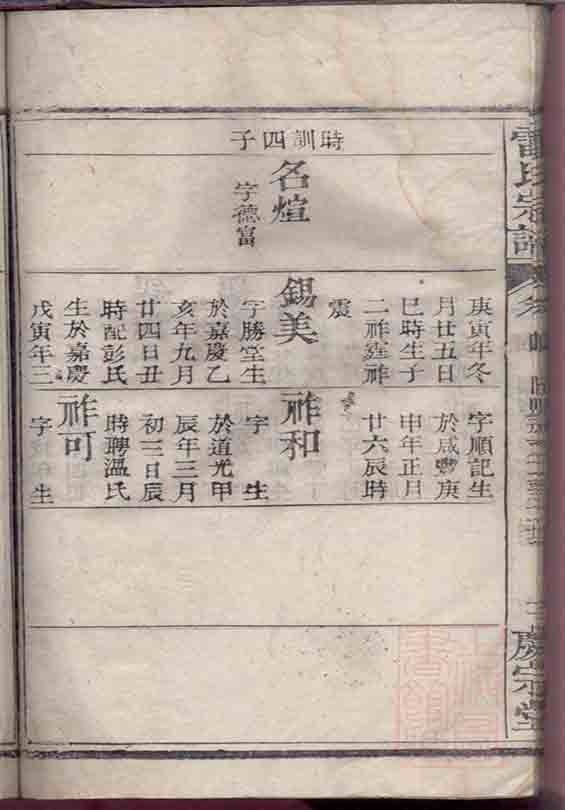 雷氏宗譜
慶宗堂
時訓四子
名煊
字德富
庚寅年冬
月廿五日
巳時生子
二祚霆祚
震
錫美
字勝堂生
於嘉慶乙
亥年九月
廿四日丑
時配彭氏
生於嘉慶
戊寅年三
字順記生
於咸豐庚
申年正月
廿六辰時
祚和
字 生
於道光甲
辰年三月
初三日辰
時聘溫氏
祚可
字 生